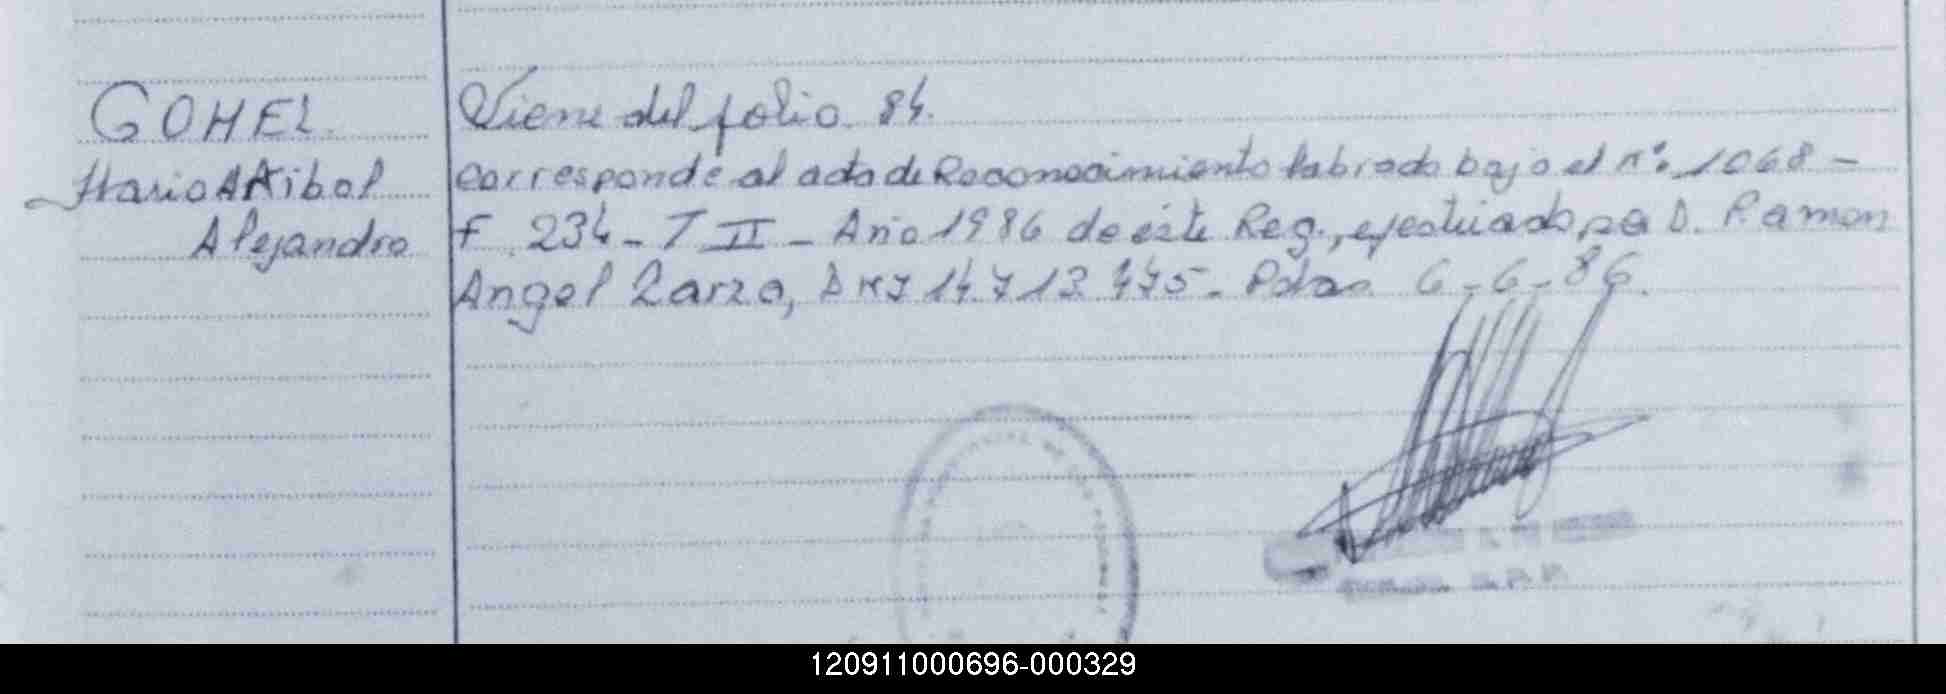 GOMEL
Mario Anibal
Alejandro
Viene del folio 84.
Corresponde al acta de Reconocimiento labrada bajo el n°. 1068 -
F 234 - T II - Año 1986 de éste Reg., efectuado por D. Ramon
Angel Zarza, DNI 14.713.475. Pdas. 6-6-86.
120911000696-000329